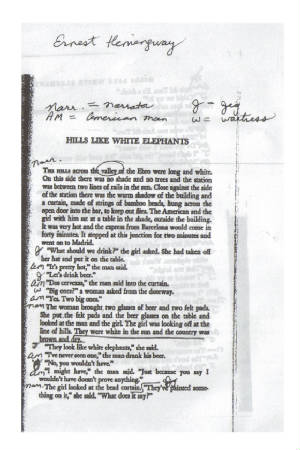 Ernest Hemingway
Narr. = narrator J = Jig
AM = American man W = waitress
HILLS LIKE WHITE ELEPHANTS
narr.
THE HILLS across the valley of the Ebro were long and white.
On this side there was no shade and no trees and the station
was between two lines of rails in the sun. Close against the side
of the station there was the warm shadow of the building and
a curtain, made of strings of bamboo beads, hung across the
open door into the bar, to keep out flies. The American and the
girl with him sat at a table in the shade, outside the building.
It was very hot and the express from Barcelona would come in
forty minutes. It stopped at this junction for two minutes and
went on to Madrid.
J "What should we drink?" the girl asked. She had taken off
her hat and put it on the table.
am "It's pretty hot," the man said.
J "Let's drink beer."
am "Dos cervezas," the man said into the curtain.
W "Big ones?" a woman asked from the doorway.
am "Yes. Two big ones."
narr The woman brought two glasses of beer and two felt pads.
She put the felt pads and the beer glasses on the table and
looked at the man and the girl. The girl was looking off at the
line of hills. They were white in the sun and the country was
brown and dry.
J "They look like white elephants," she said.
am "I've never seen one," the man drank his beer.
J "No, you wouldn't have."
am "I might have," the man said. "Just because you say I
wouldn't have doesn't prove anything."
narr The girl looked at the bead curtain. "They've painted some-
thing on it," she said. "What does it say?"